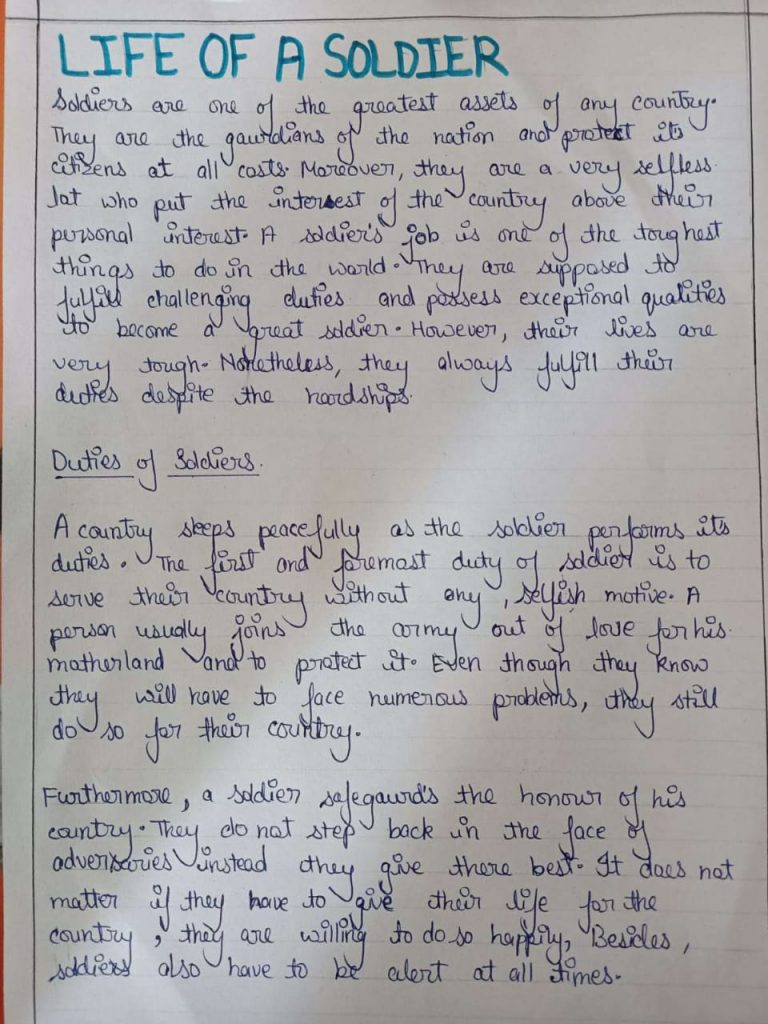 LIFE OF A SOLDIER
Soldiers are one of the greatest assets of any country.
They are the gaurdians of the nation and protect its
citizens at all costs. Moreover, they are a very selfless
lot who put the interest of the country above their
personal interest. A soldier's job is one of the toughest
things to do in the world. They are supposed to
fulfill challenging duties and possess exceptional qualities
to become a great soldier. However, their lives are
very tough. Nonetheless, they always fulfill their
duties despite the hardships.
Duties of Soldiers.
A country sleeps peacefully as the soldier performs its
duties. The first and foremost duty of soldier is to
serve their country without any, selfish motive. A
person usually joins the army out of love for his
motherland and to protect it. Even though they know
they will have to face numerous problems, they still
do so for their country.
Furthermore, a soldier safegaurd's the honour of his
country. They do not step back in the face of
adversaries instead they give there best. It does not
matter if they have to give their life for the
country, they are willing to do so happily, Besides,
soldiers also have to be alert at all times.